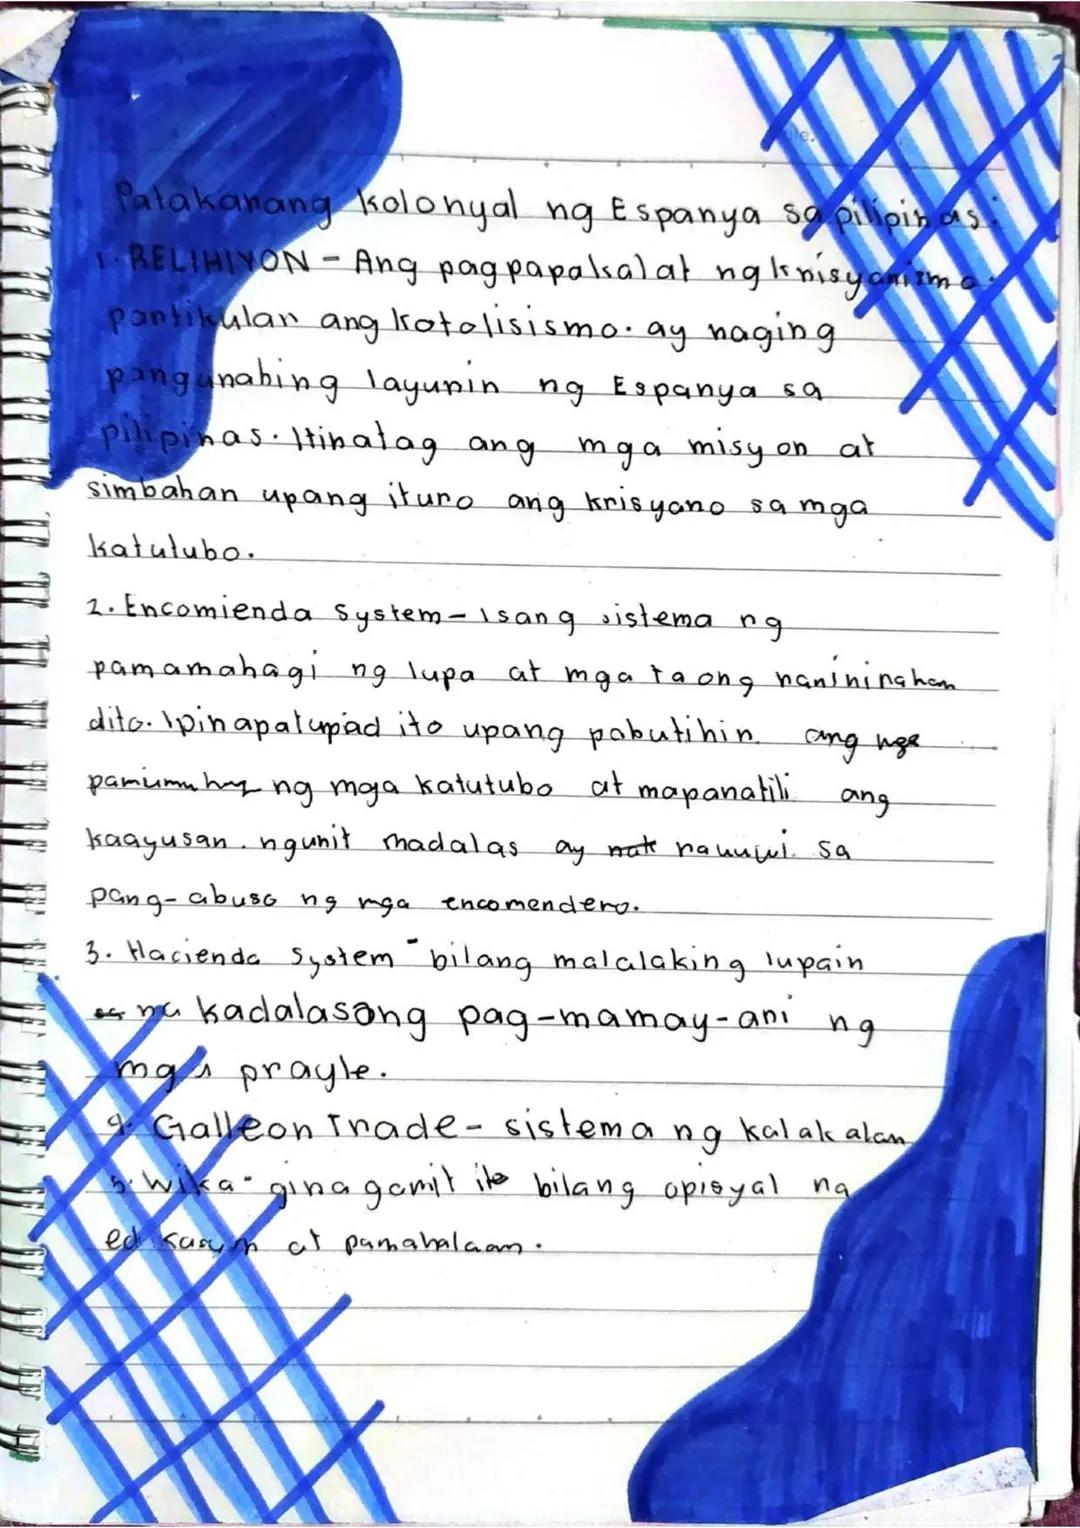 Patakarang kolonyal ng Espanya sa pilipinas:
1. RELIHIYON - Ang pagpapakalat ng krisyanismo.
partikular ang katolisismo. ay naging
pangunahing layunin ng Espanya sa
pilipinas. Itinatag ang mga misyon at
simbahan upang ituro ang krisyano sa mga
katutubo.
2. Encomienda System - Isang sistema ng
pamamahagi ng lupa at mga taong naninirahan
dito. Ipinapatupad ito upang pabutihin ang mga
pamumuhay ng mga katutubo at mapanatili ang
kaayusan. ngunit madalas ay nauuwi sa
pang-abuso ng mga encomendero.
3. Hacienda System - bilang malalaking lupain
na kadalasang pag-mamay-ari ng
mga prayle.
4. Galleon Trade - sistema ng kalakalan
5. Wika - ginagamit ito bilang opisyal na
edukasyon at pamahalaan.